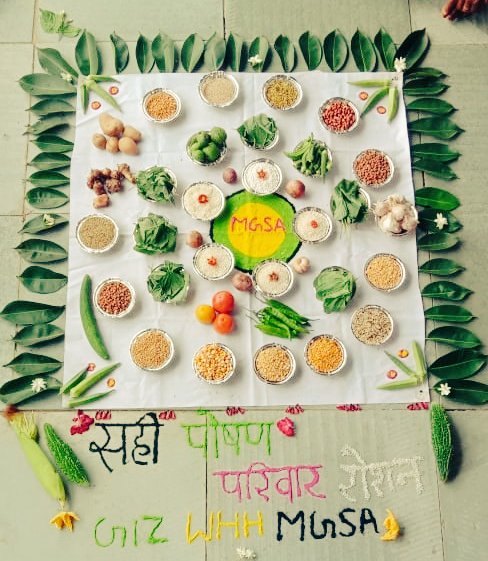 MGSA
सही पोषण
परिवार रोशन
GIZ WHH MGSA